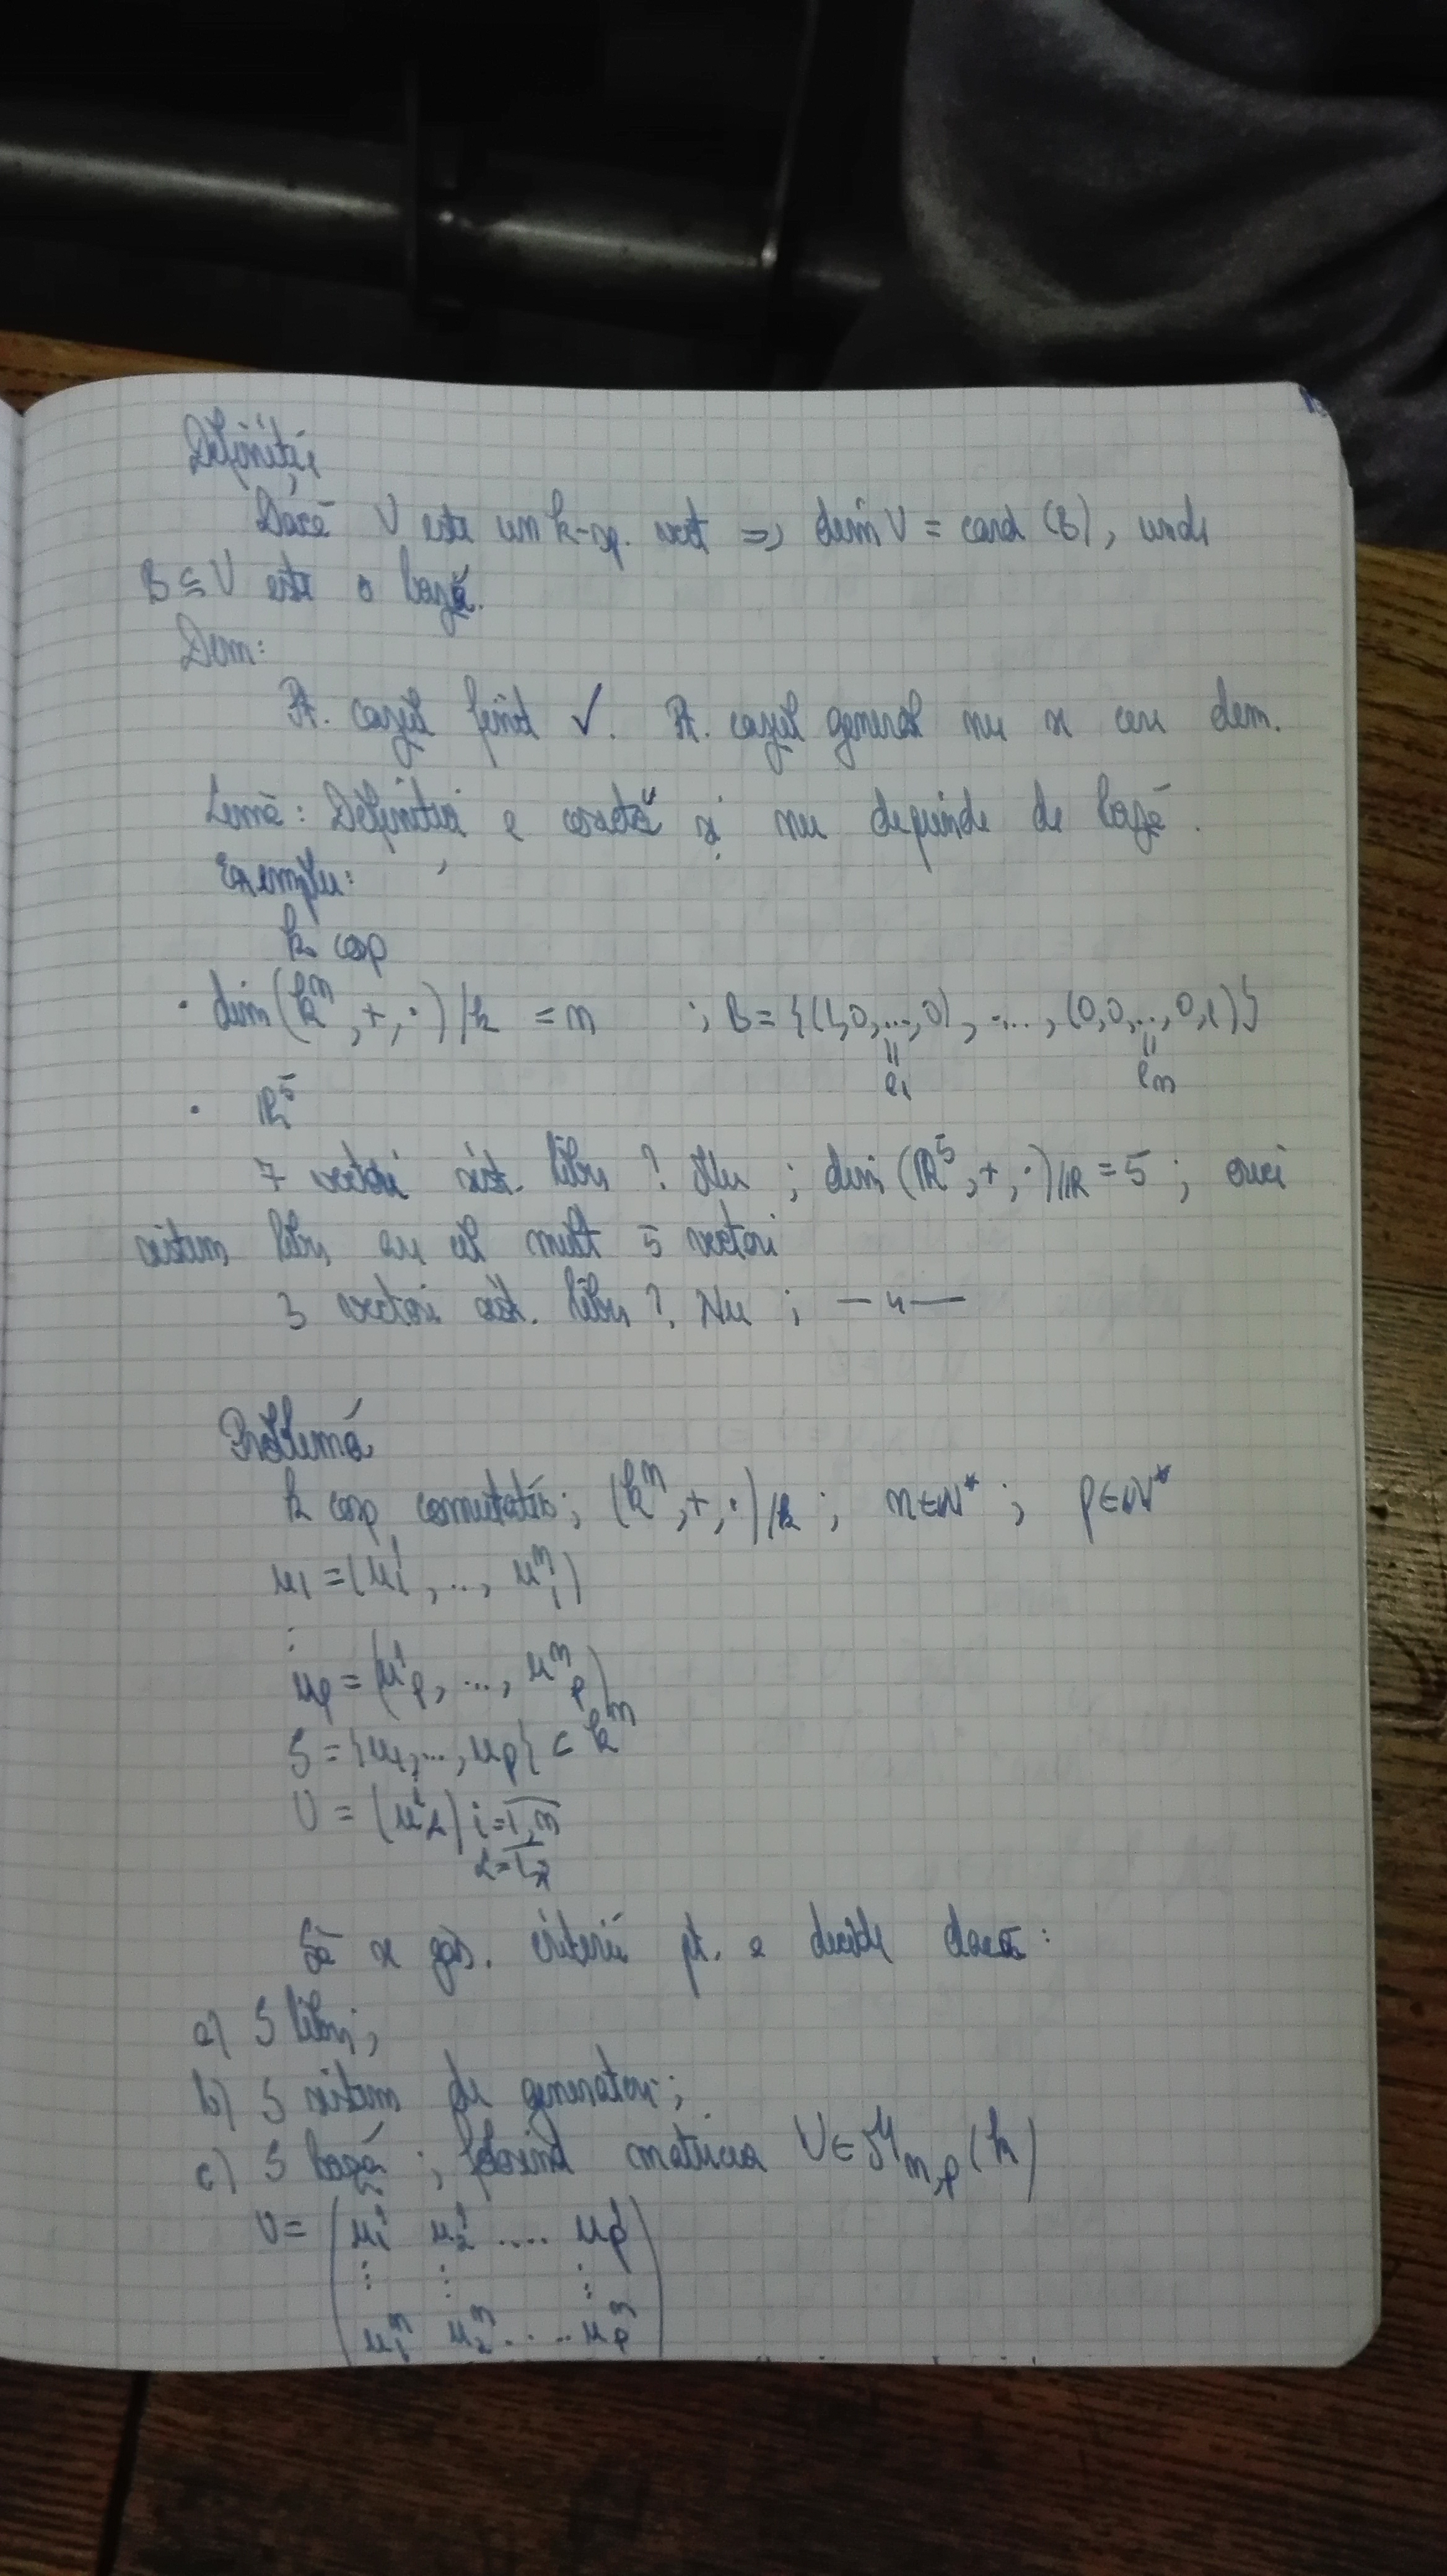 Definiții
Dacă V este un k-sp. vect => dim V = card (B), unde
B ⊆ V este o bază.
Dem:
Pt. cazul finit ✓. Pt. cazul general nu se cere dem.
Lemă: Definiția e corectă și nu depinde de bază.
Exemplu:
k corp
· dim(kⁿ, +, ·)/k = n ; B = {(1,0,...,0), ...., (0,0,...,0,1)}
= e₁ = eₙ
· ℝ⁵
7 vectori sist. liber ? Nu ; dim (ℝ⁵, +, ·)/ℝ = 5 ; orice
sistem liber are cel mult 5 vectori
3 vectori sist. liber ? Nu ; —"—
Problemă
k corp comutativ; (kⁿ, +, ·)/k ; n∈ℕ* ; p∈ℕ*
u₁ = (u₁¹, ..., u₁ⁿ)
⋮
uₚ = (uₚ¹, ..., uₚⁿ)
S = {u₁, ..., uₚ} ⊂ kⁿ
U = (uⁱ_α) i=1,n
α=1,p
Să se găs. criterii pt. a decide dacă:
a) S liber;
b) S sistem de generatori;
c) S bază ; folosind matricea U ∈ ℳₙ,ₚ(k)
U = (u₁¹ u₂¹ .... uₚ¹
⋮ ⋮ ⋮
u₁ⁿ u₂ⁿ .... uₚⁿ)